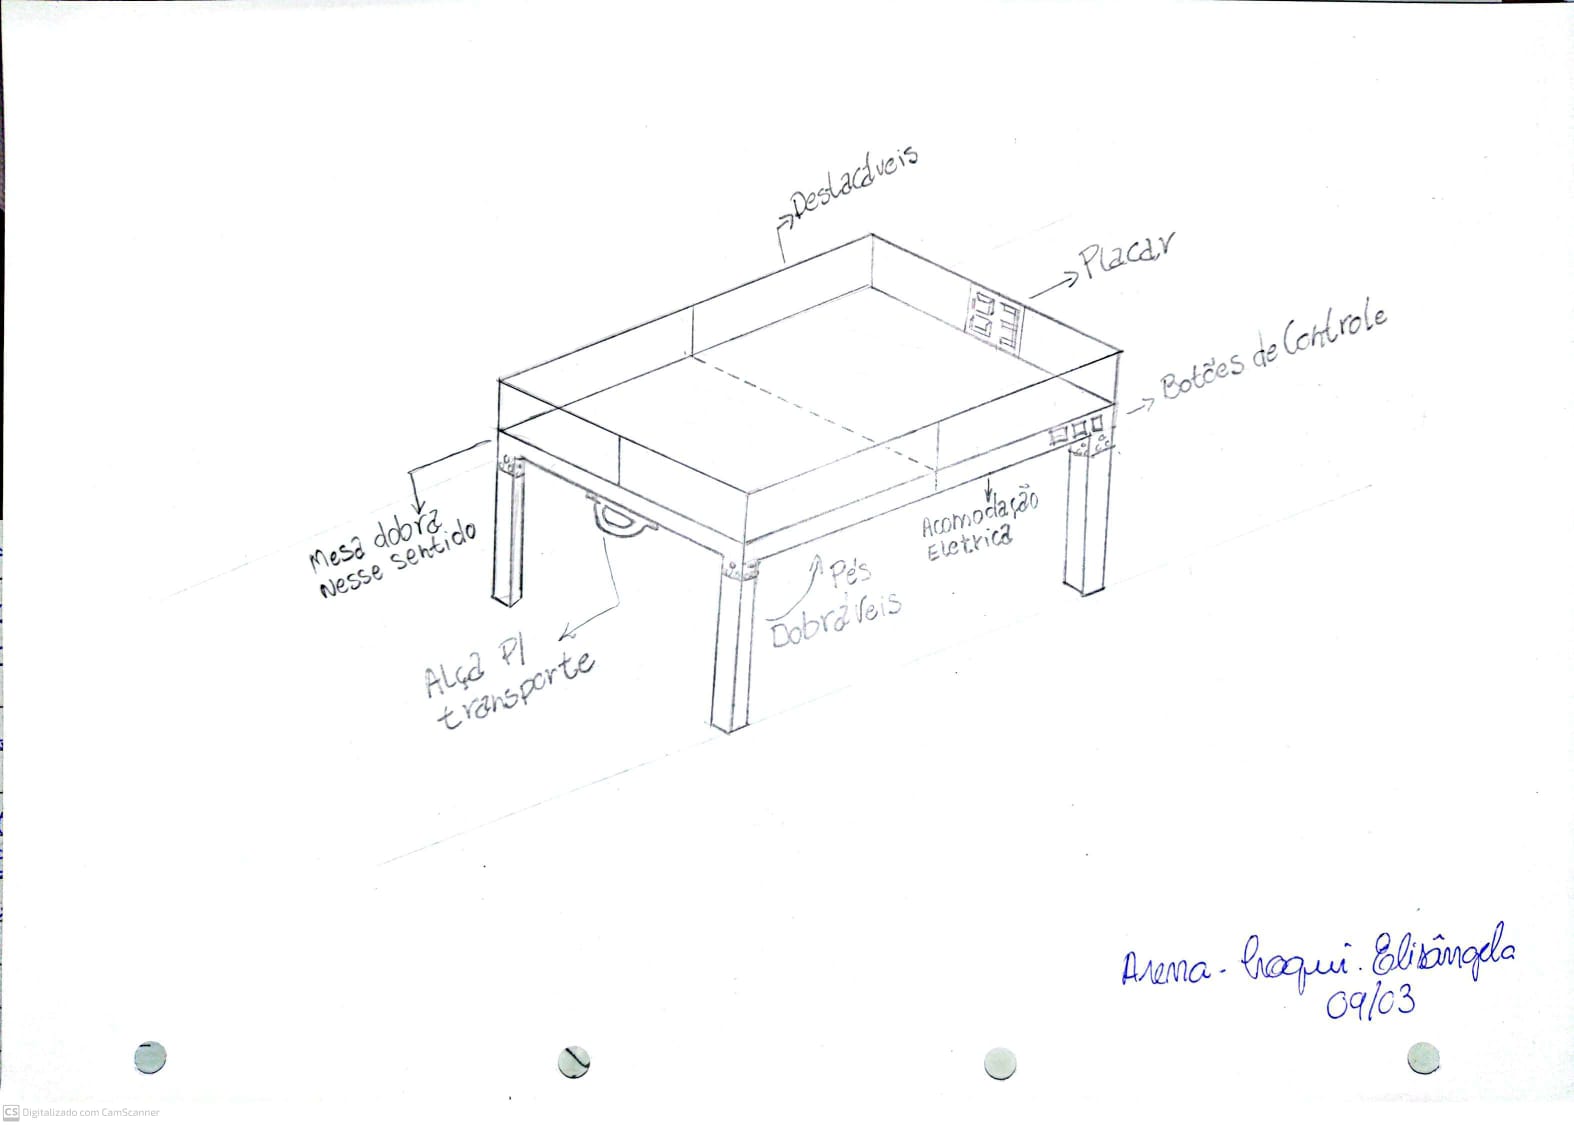 Destacáveis
Placar
Botões de Controle
Mesa dobra
nesse sentido
Acomodação
Eletrica
Pés
Dobráveis
Alça P/
transporte
Arena - Croqui. Elisângela
09/03
CS Digitalizado com CamScanner